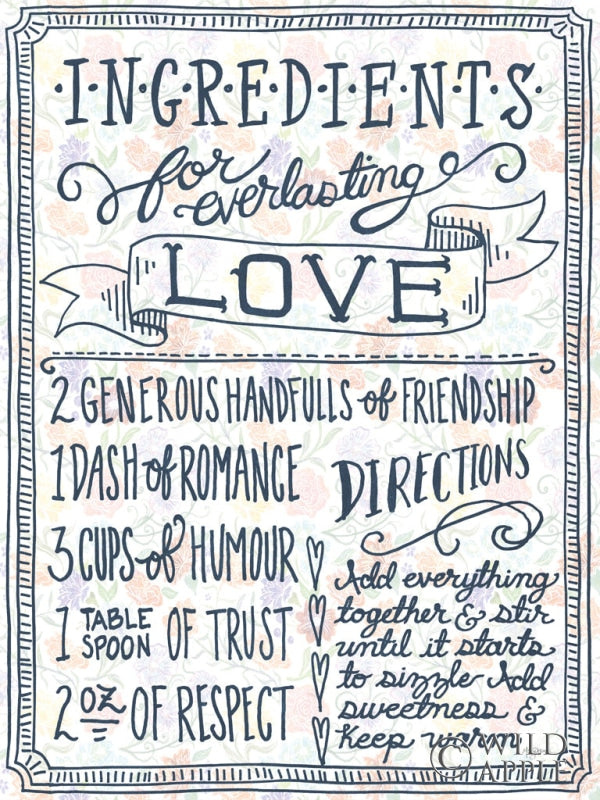 ·I·N·G·R·E·D·I·E·N·T·S·
for
everlasting
LOVE
2 GENEROUS HANDFULLS of FRIENDSHIP
1 DASH of ROMANCE
3 CUPS of HUMOUR
1 TABLE SPOON OF TRUST
2 oz OF RESPECT
DIRECTIONS
Add everything
together & stir
until it starts
to sizzle Add
sweetness &
Keep warm
© WILD
APPLE